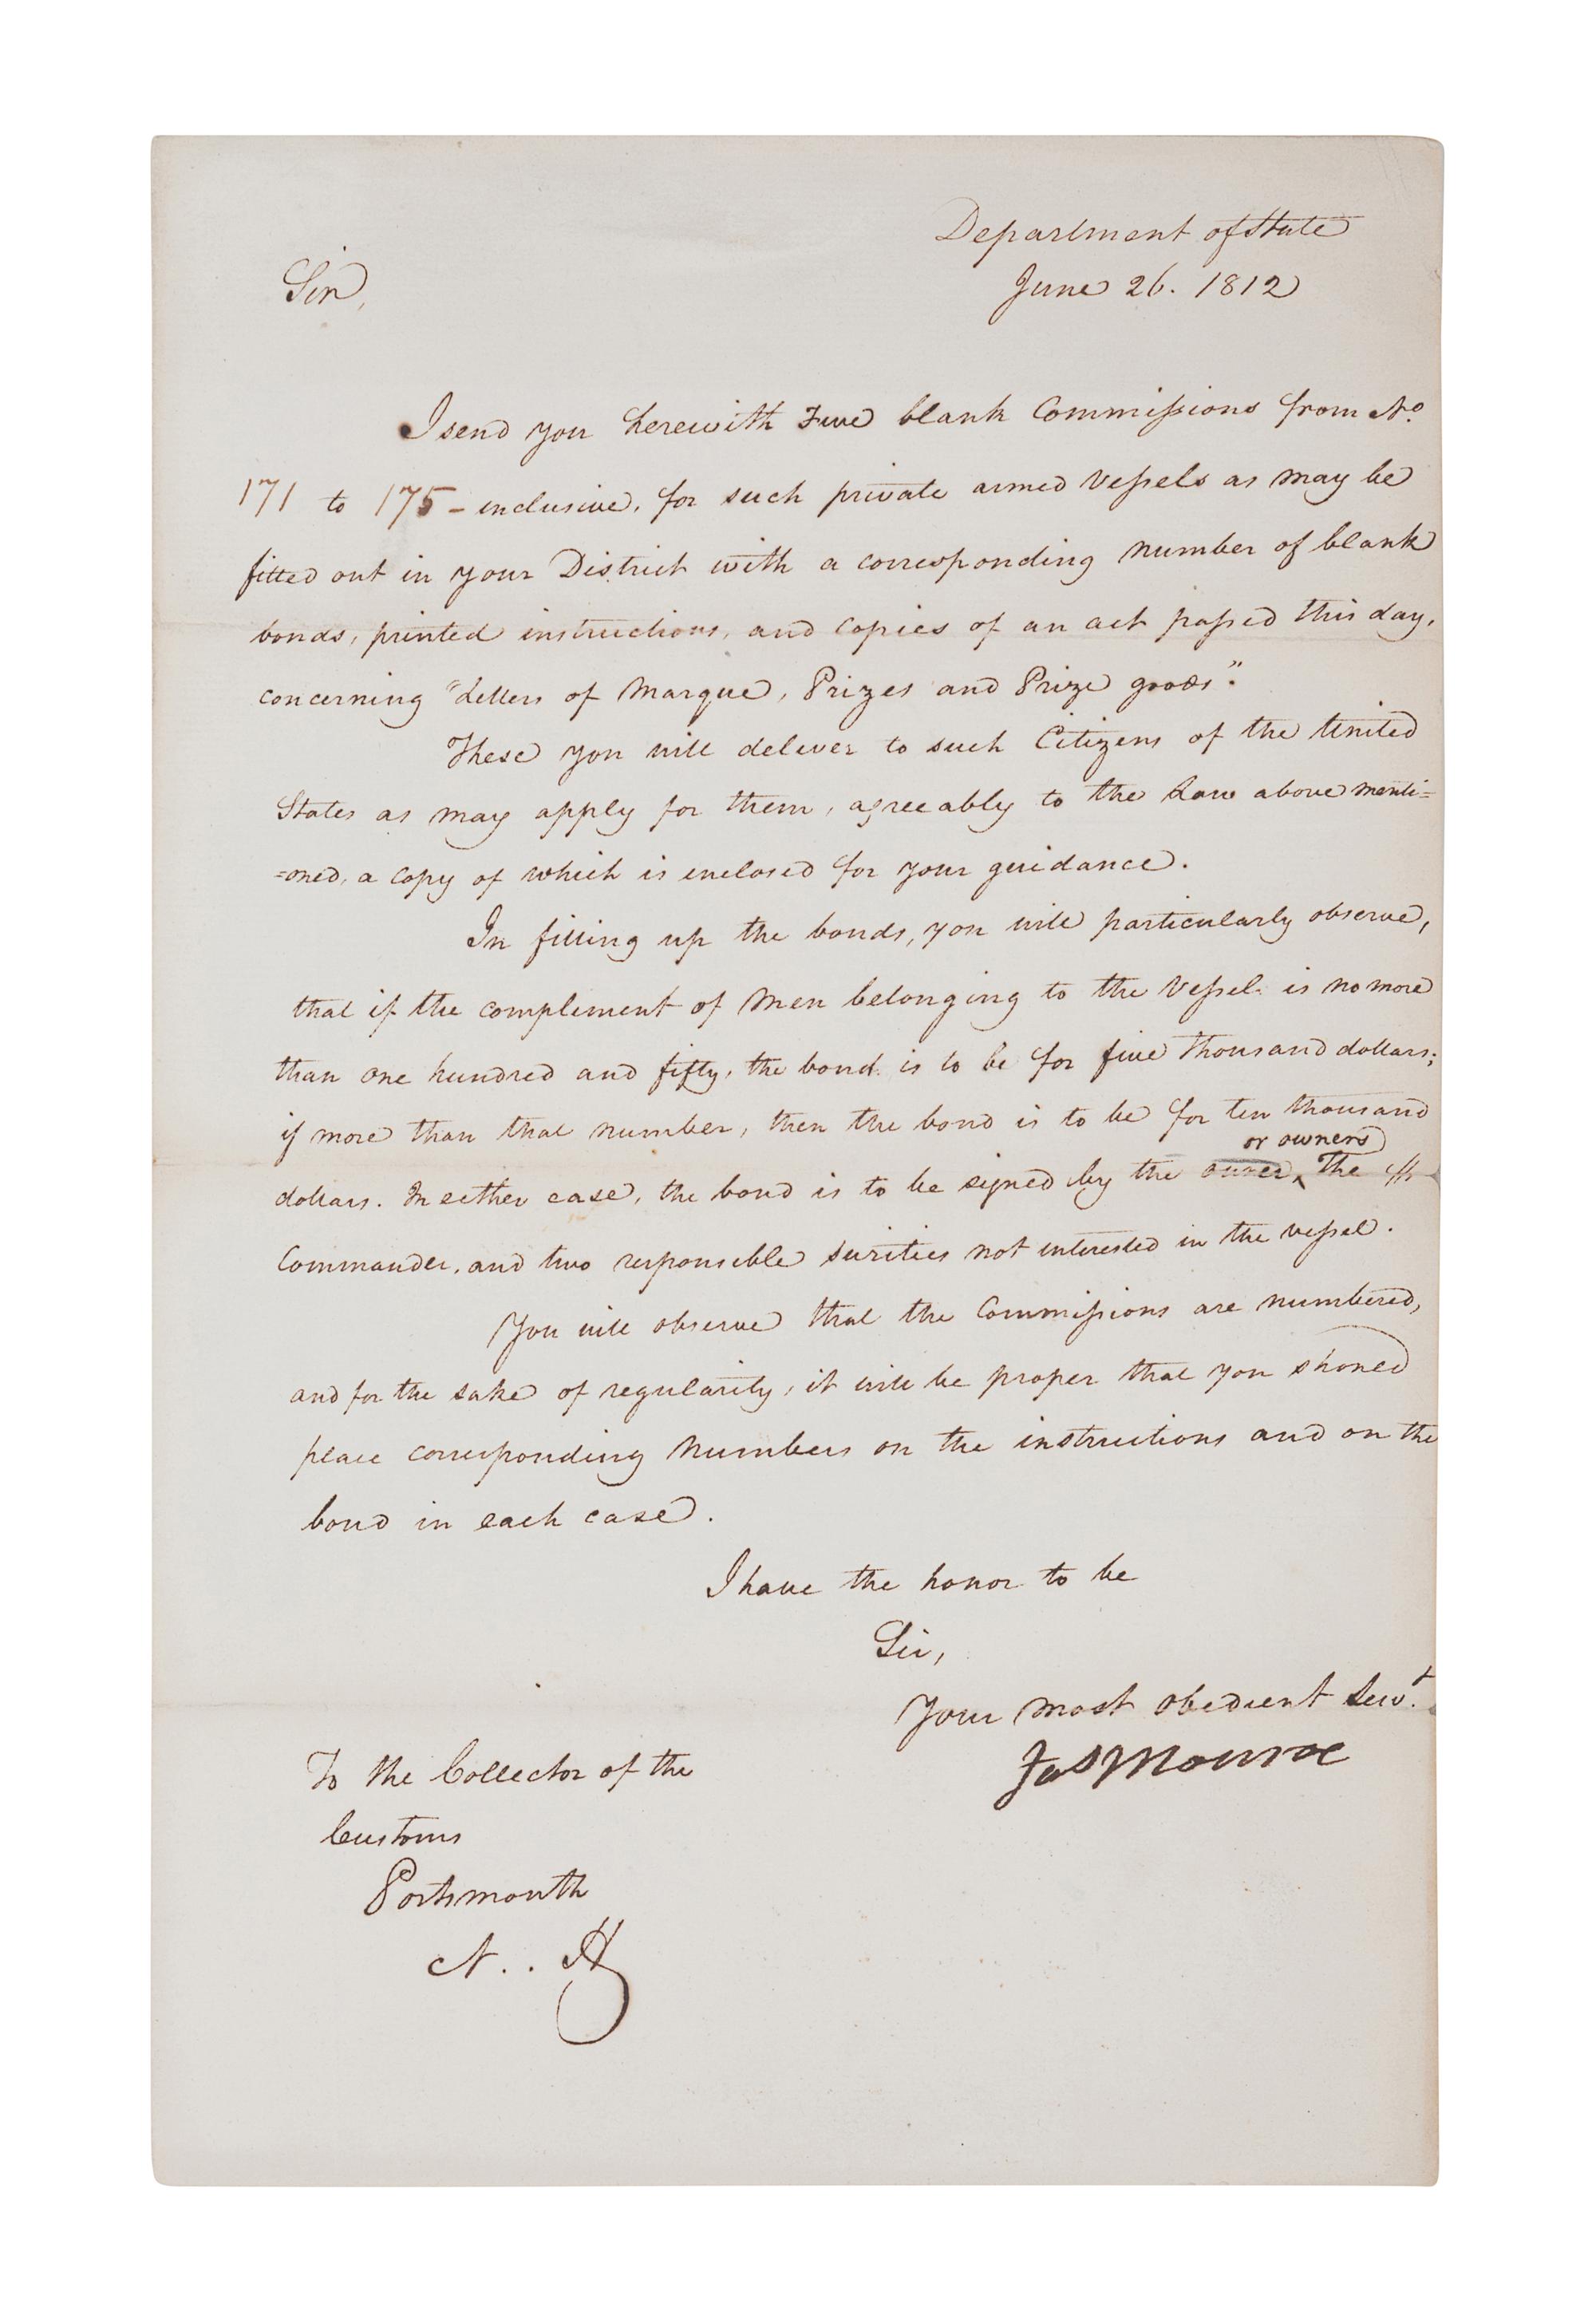 Department of State
June 26. 1812
Sir,
I send you herewith Five blank Commissions from No.
171 to 175 - inclusive, for such private armed Vessels as may be
fitted out in your District with a corresponding number of blank
bonds, printed instructions, and copies of an act passed this day,
concerning "Letters of Marque, Prizes and Prize goods".
These you will deliver to such Citizens of the United
States as may apply for them, agreeably to the Law above menti=
=oned, a copy of which is enclosed for your guidance.
In filling up the bonds, you will particularly observe,
that if the complement of Men belonging to the Vessel is no more
than one hundred and fifty, the bond is to be for five thousand dollars;
if more than that number, then the bond is to be for ten thousand
or owners
dollars. In either case, the bond is to be signed by the owner, The
Commander, and two responsible surities not interested in the vessel.
You will observe that the Commissions are numbered,
and for the sake of regularity, it will be proper that you should
place corresponding Numbers on the instructions and on the
bond in each case.
I have the honor to be
Sir,
Your most obedient Servt.
Jas Monroe
To the Collector of the
Customs
Portsmouth
N. . H